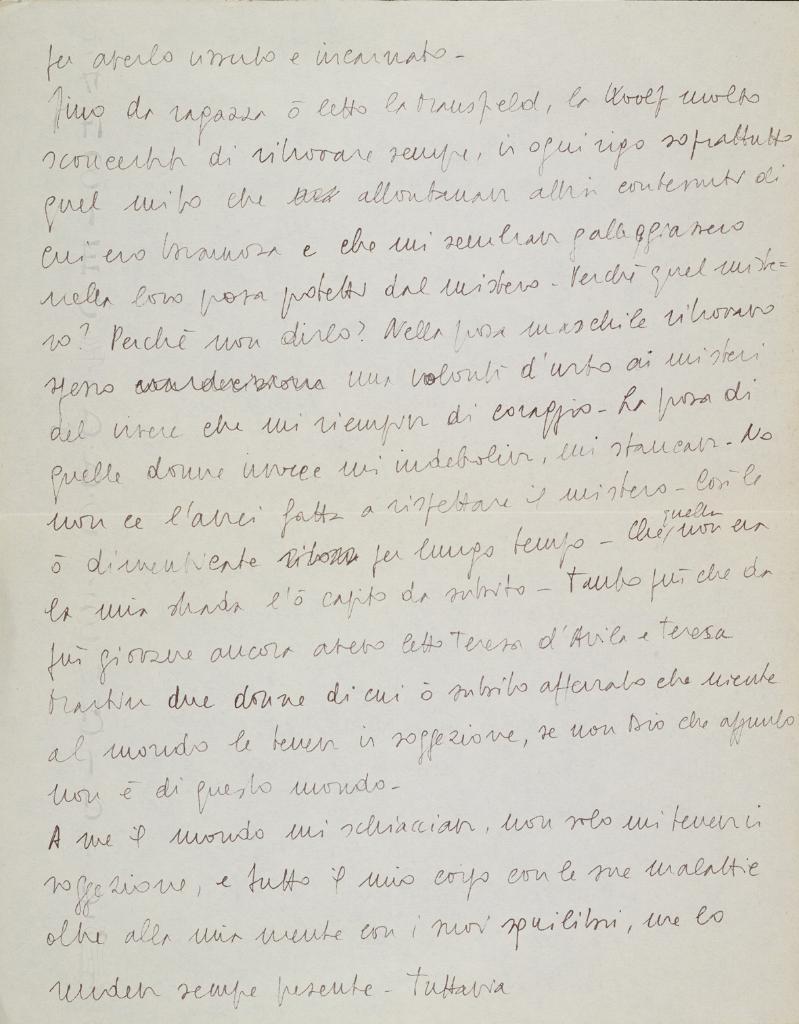 per averlo vissuto e incarnato -
Fino da ragazza ò letto la Mansfield, la Woolf molto
sconcertata di ritrovare sempre, in ogni rigo soprattutto
quel mito che allontanava altri contenuti di
cui ero bramosa e che mi sembrava galleggiassero
nella loro prosa protetti dal mistero - Perché quel miste=
ro? Perchè non dirlo? Nella prosa maschile ritrovavo
spesso una volontà d'urto ai misteri
del vivere che mi riempiva di coraggio - La prosa di
quelle donne invece mi indeboliva, mi stancava - No
non ce l'avrei fatta a rispettare il mistero - Così le
ò dimenticate per lungo tempo - Che quella non era
la mia strada l'ò capito da subito - Tanto più che da
più giovane ancora avevo letto Teresa d'Avila e Teresa
Martin due donne di cui ò subito afferrato che niente
al mondo le teneva in soggezione, se non Dio che appunto
non è di questo mondo -
A me il mondo mi schiacciava, non solo mi teneva in
soggezione, e tutto il mio corpo con le sue malattie
oltre alla mia mente con i suoi squilibri, me lo
rendeva sempre presente - Tuttavia